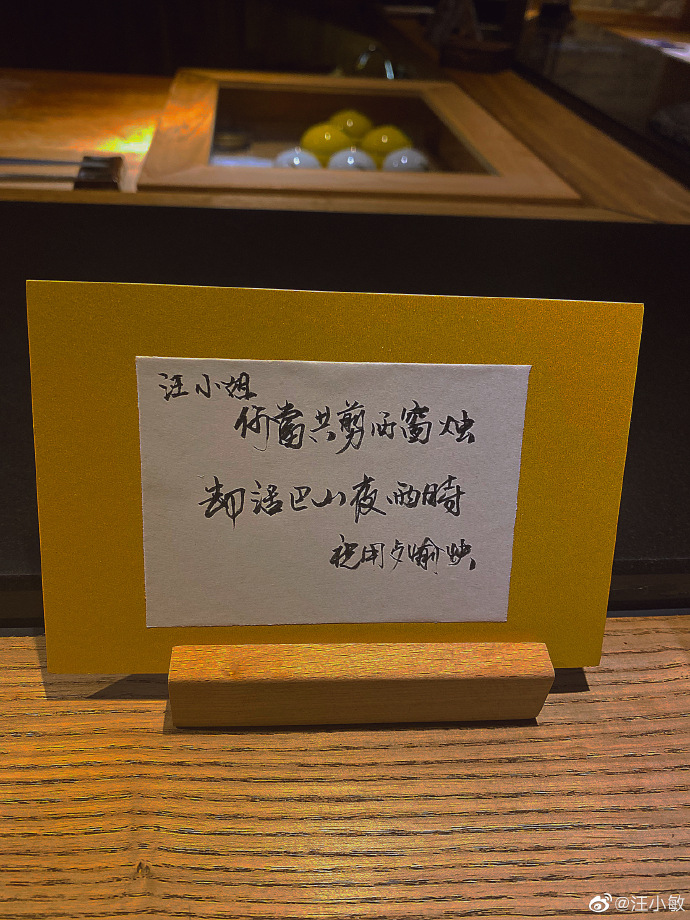 汪小姐
何當共剪西窗烛
却話巴山夜雨時
祝用夕愉快
@汪小敏